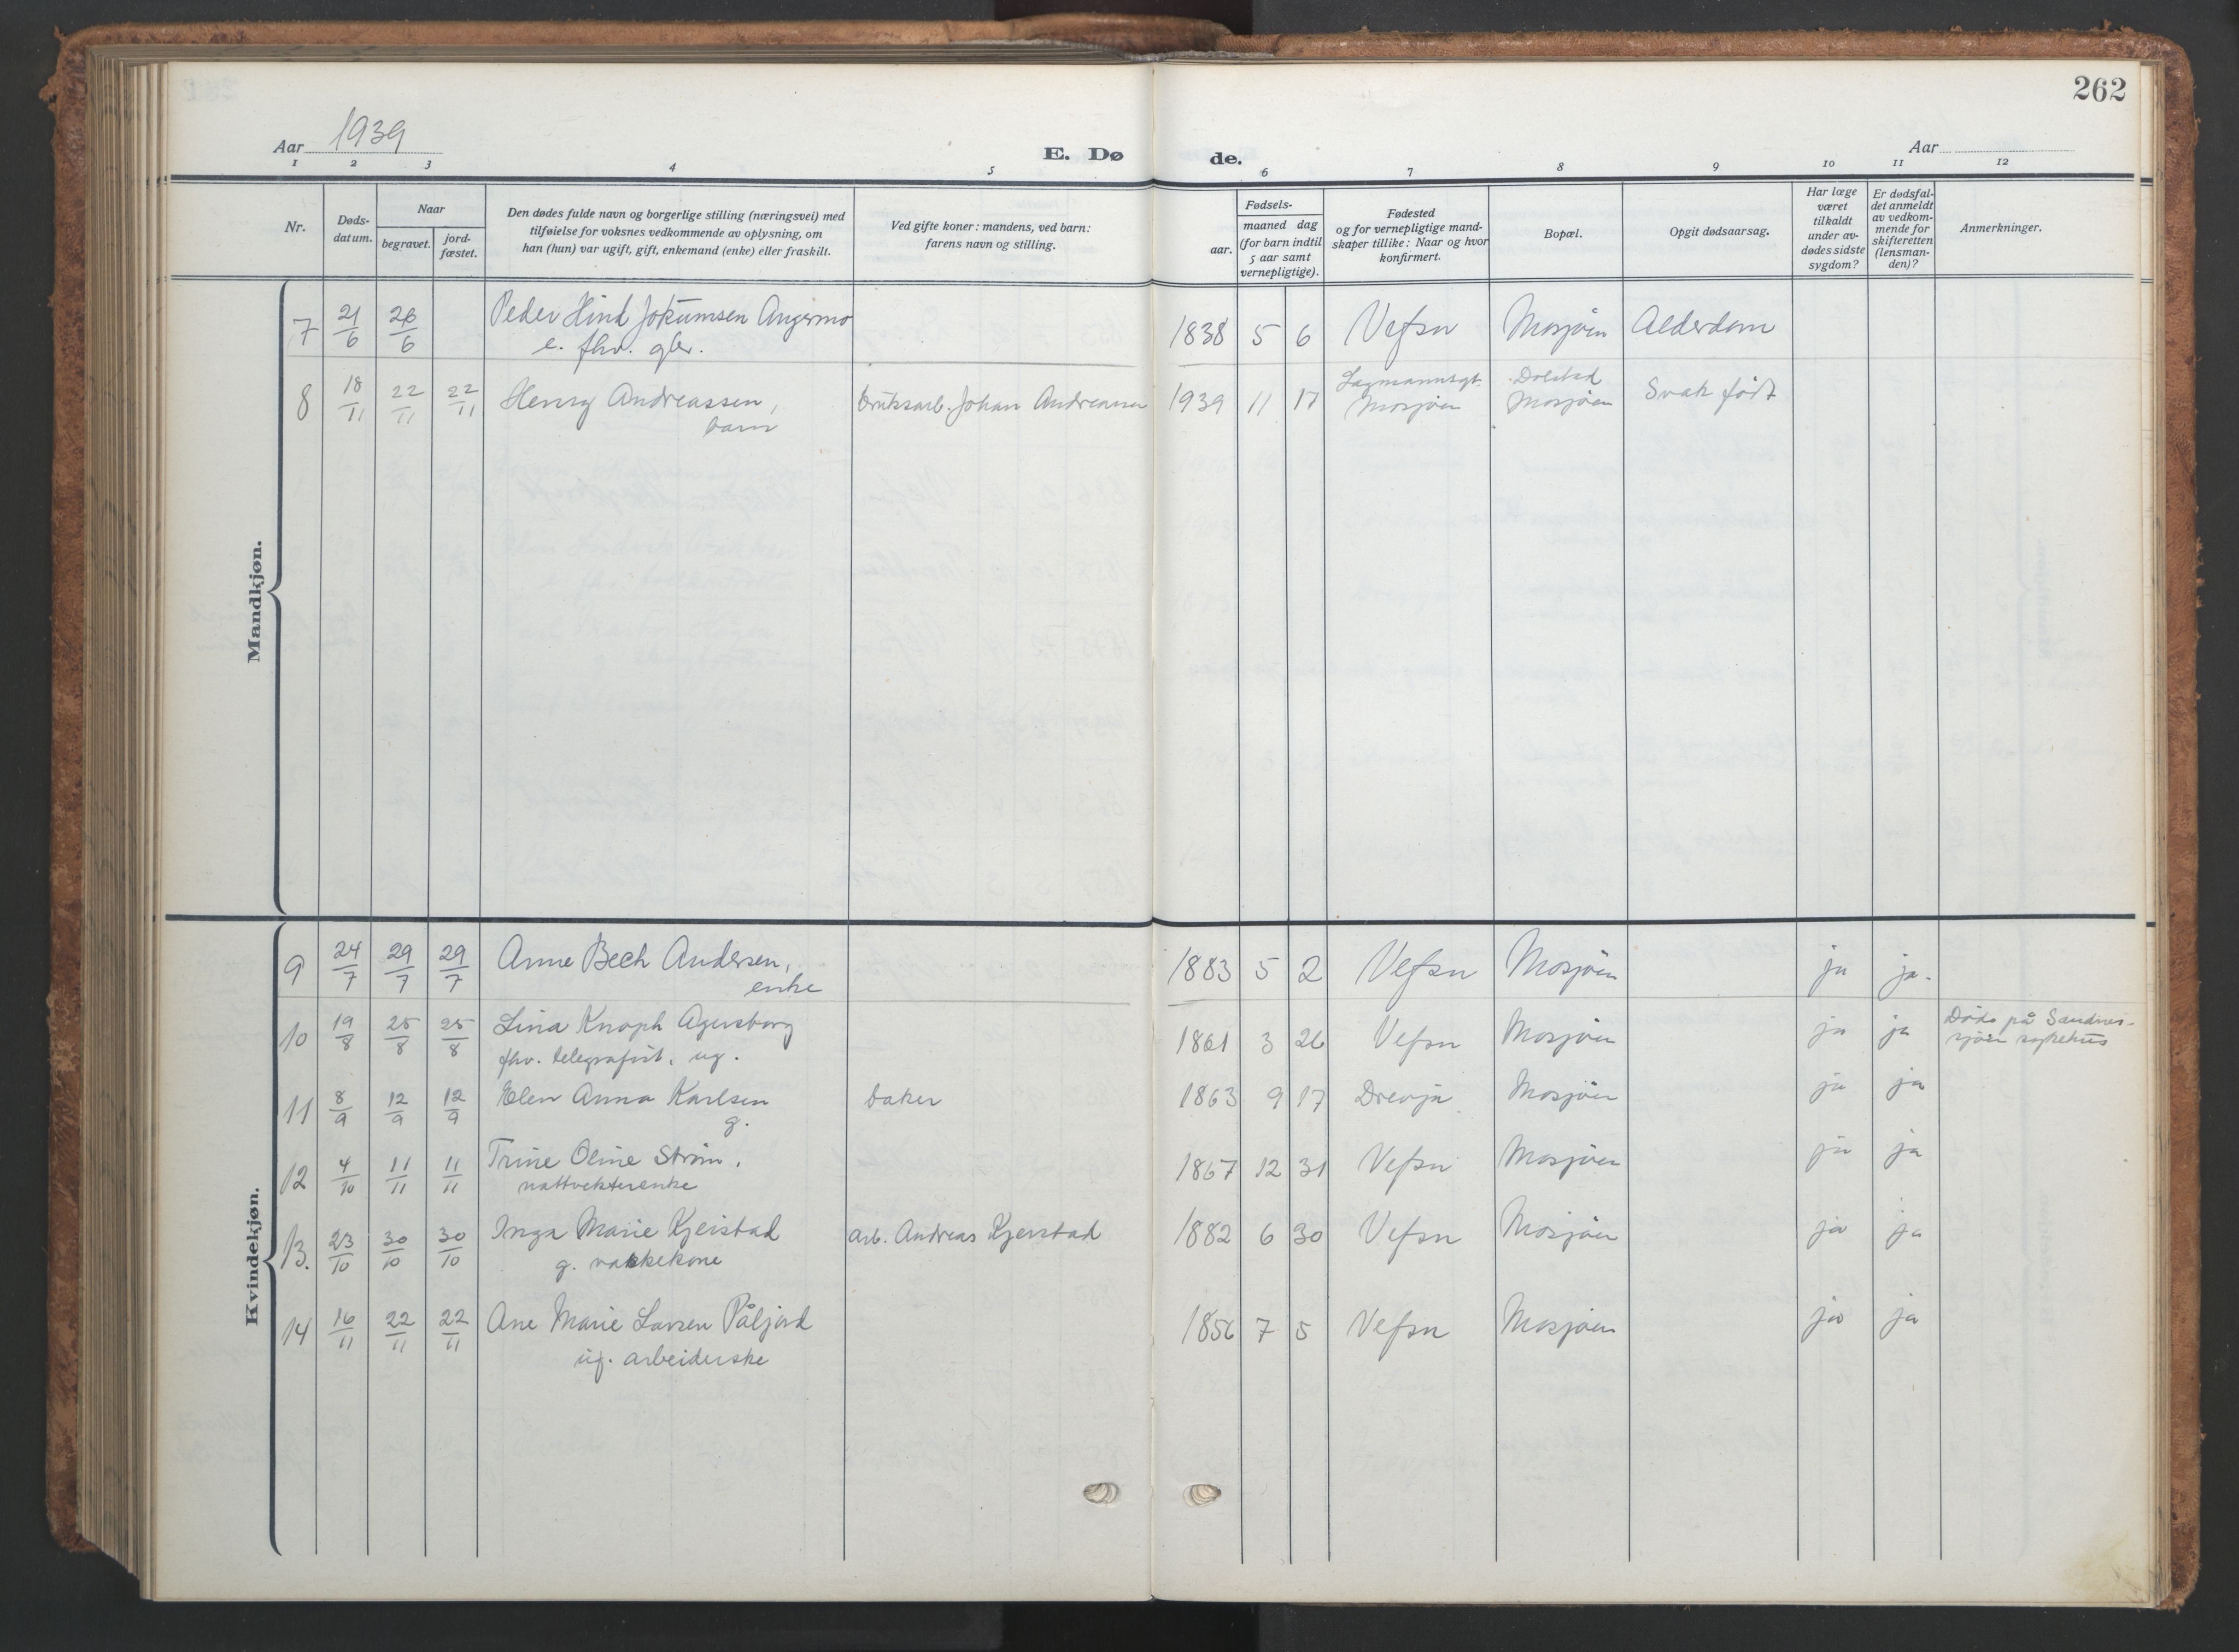 262
Aar 1939
E. Døde.
Aar
1 2 3 4 5 6 7 8 9 10 11 12
Nr.
Døds-
datum.
Naar
begravet.
jord-
fæstet.
Den dødes fulde navn og borgerlige stilling (næringsvei) med
tilføielse for voksnes vedkommende av oplysning, om
han (hun) var ugift, gift, enkemand (enke) eller fraskilt.
Ved gifte koner: mandens, ved barn:
farens navn og stilling.
Fødsels-
aar.
maaned dag
(for barn indtil
5 aar samt
vernepligtige).
Fødested
og for vernepligtige mand-
skaper tillike: Naar og hvor
konfirmert.
Bopæl.
Opgit dødsaarsag.
Har læge
været
tilkaldt
under av-
dødes sidste
sygdom?
Er dødsfal-
det anmeldt
av vedkom-
mende for
skifteretten
(lensman-
den)?
Anmerkninger.
Mandkjøn.
7 21/6 26/6 Peder Hind Jokumsen Angermo 1838 5 6 Vefsn Mosjøen Alderdom
e. fhv. gbr.
8 18/11 22/11 22/11 Henry Andreassen, bruksarb. Johan Andreassen 1939 11 17 Lagmannsgt. Dolstad Svak født
barn Mosjøen Mosjøen
Kvindekjøn.
9 24/7 29/7 29/7 Anne Bech Andersen, 1883 5 2 Vefsn Mosjøen ja ja.
enke
10 19/8 25/8 25/8 Lina Knoph Agersborg 1861 3 26 Vefsn Mosjøen ja ja Døde på Sandnes-
fhv. telegrafist, ug. sjøen sykehus
11 8/9 12/9 12/9 Elen Anna Karlsen baker 1863 9 17 Drevja Mosjøen ja ja
g.
12 4/10 11/11 11/11 Trine Oline Strøm, 1867 12 31 Vefsn Mosjøen ja ja
nattvekterenke
13. 23/10 30/10 30/10 Inga Marie Kjerstad arb. Andreas Kjerstad 1882 6 30 Vefsn Mosjøen ja ja
g. vaskekone
14 16/11 22/11 22/11 Ane Marie Larsen Påljord 1856 7 5 Vefsn Mosjøen ja ja
ug. arbeiderske